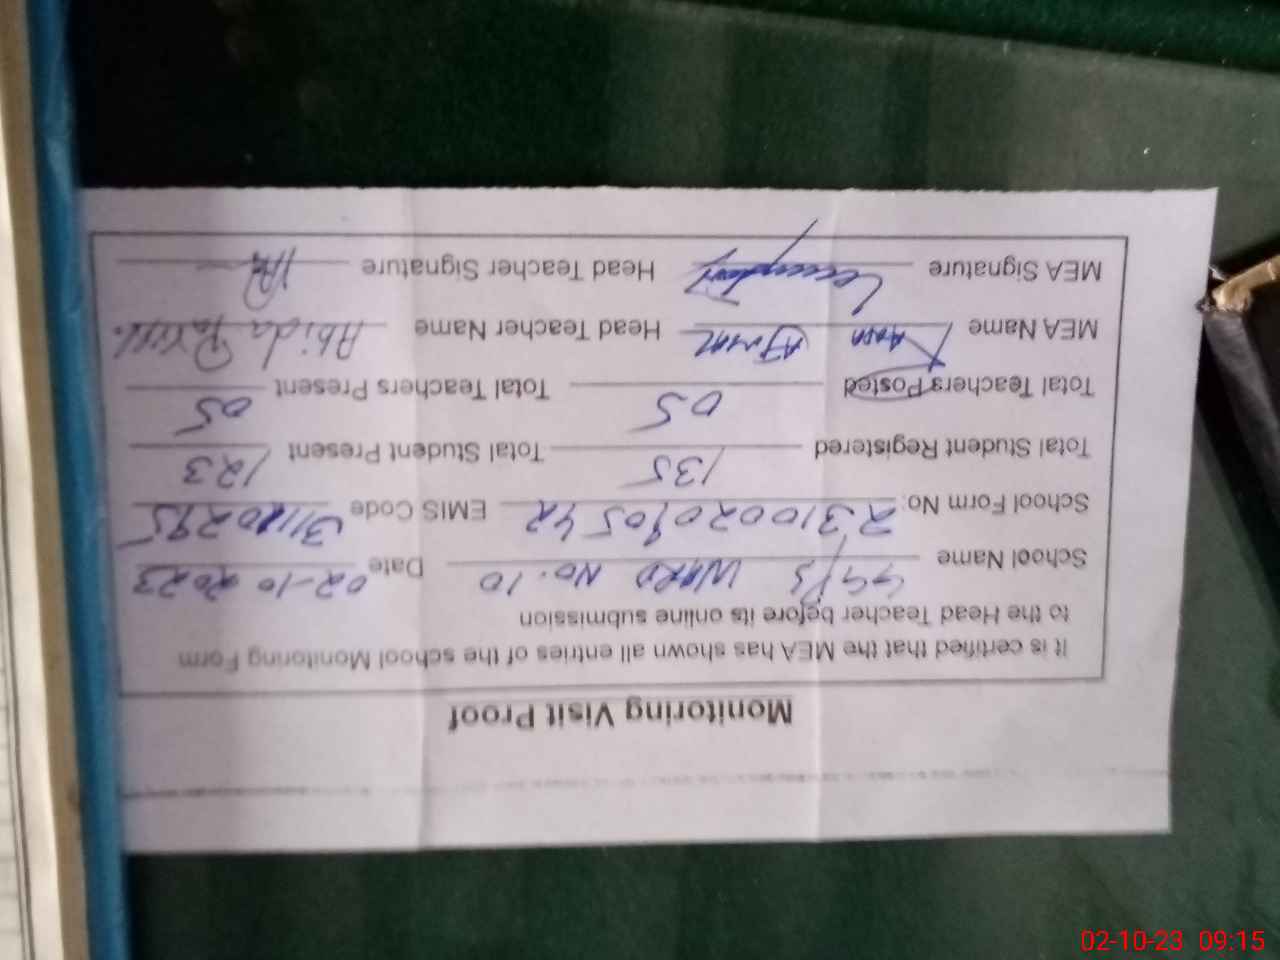 Monitoring Visit Proof
It is certified that the MEA has shown all entries of the school Monitoring Form
to the Head Teacher before its online submission
School Name GGPS WARD NO.10 Date 02-10-2023
School Form No. 23100209 0542 EMIS Code 31120295
Total Student Registered 135 Total Student Present 123
Total Teachers Posted 05 Total Teachers Present 05
MEA Name Ajmal Head Teacher Name Abida
MEA Signature Head Teacher Signature
02-10-23 09:15